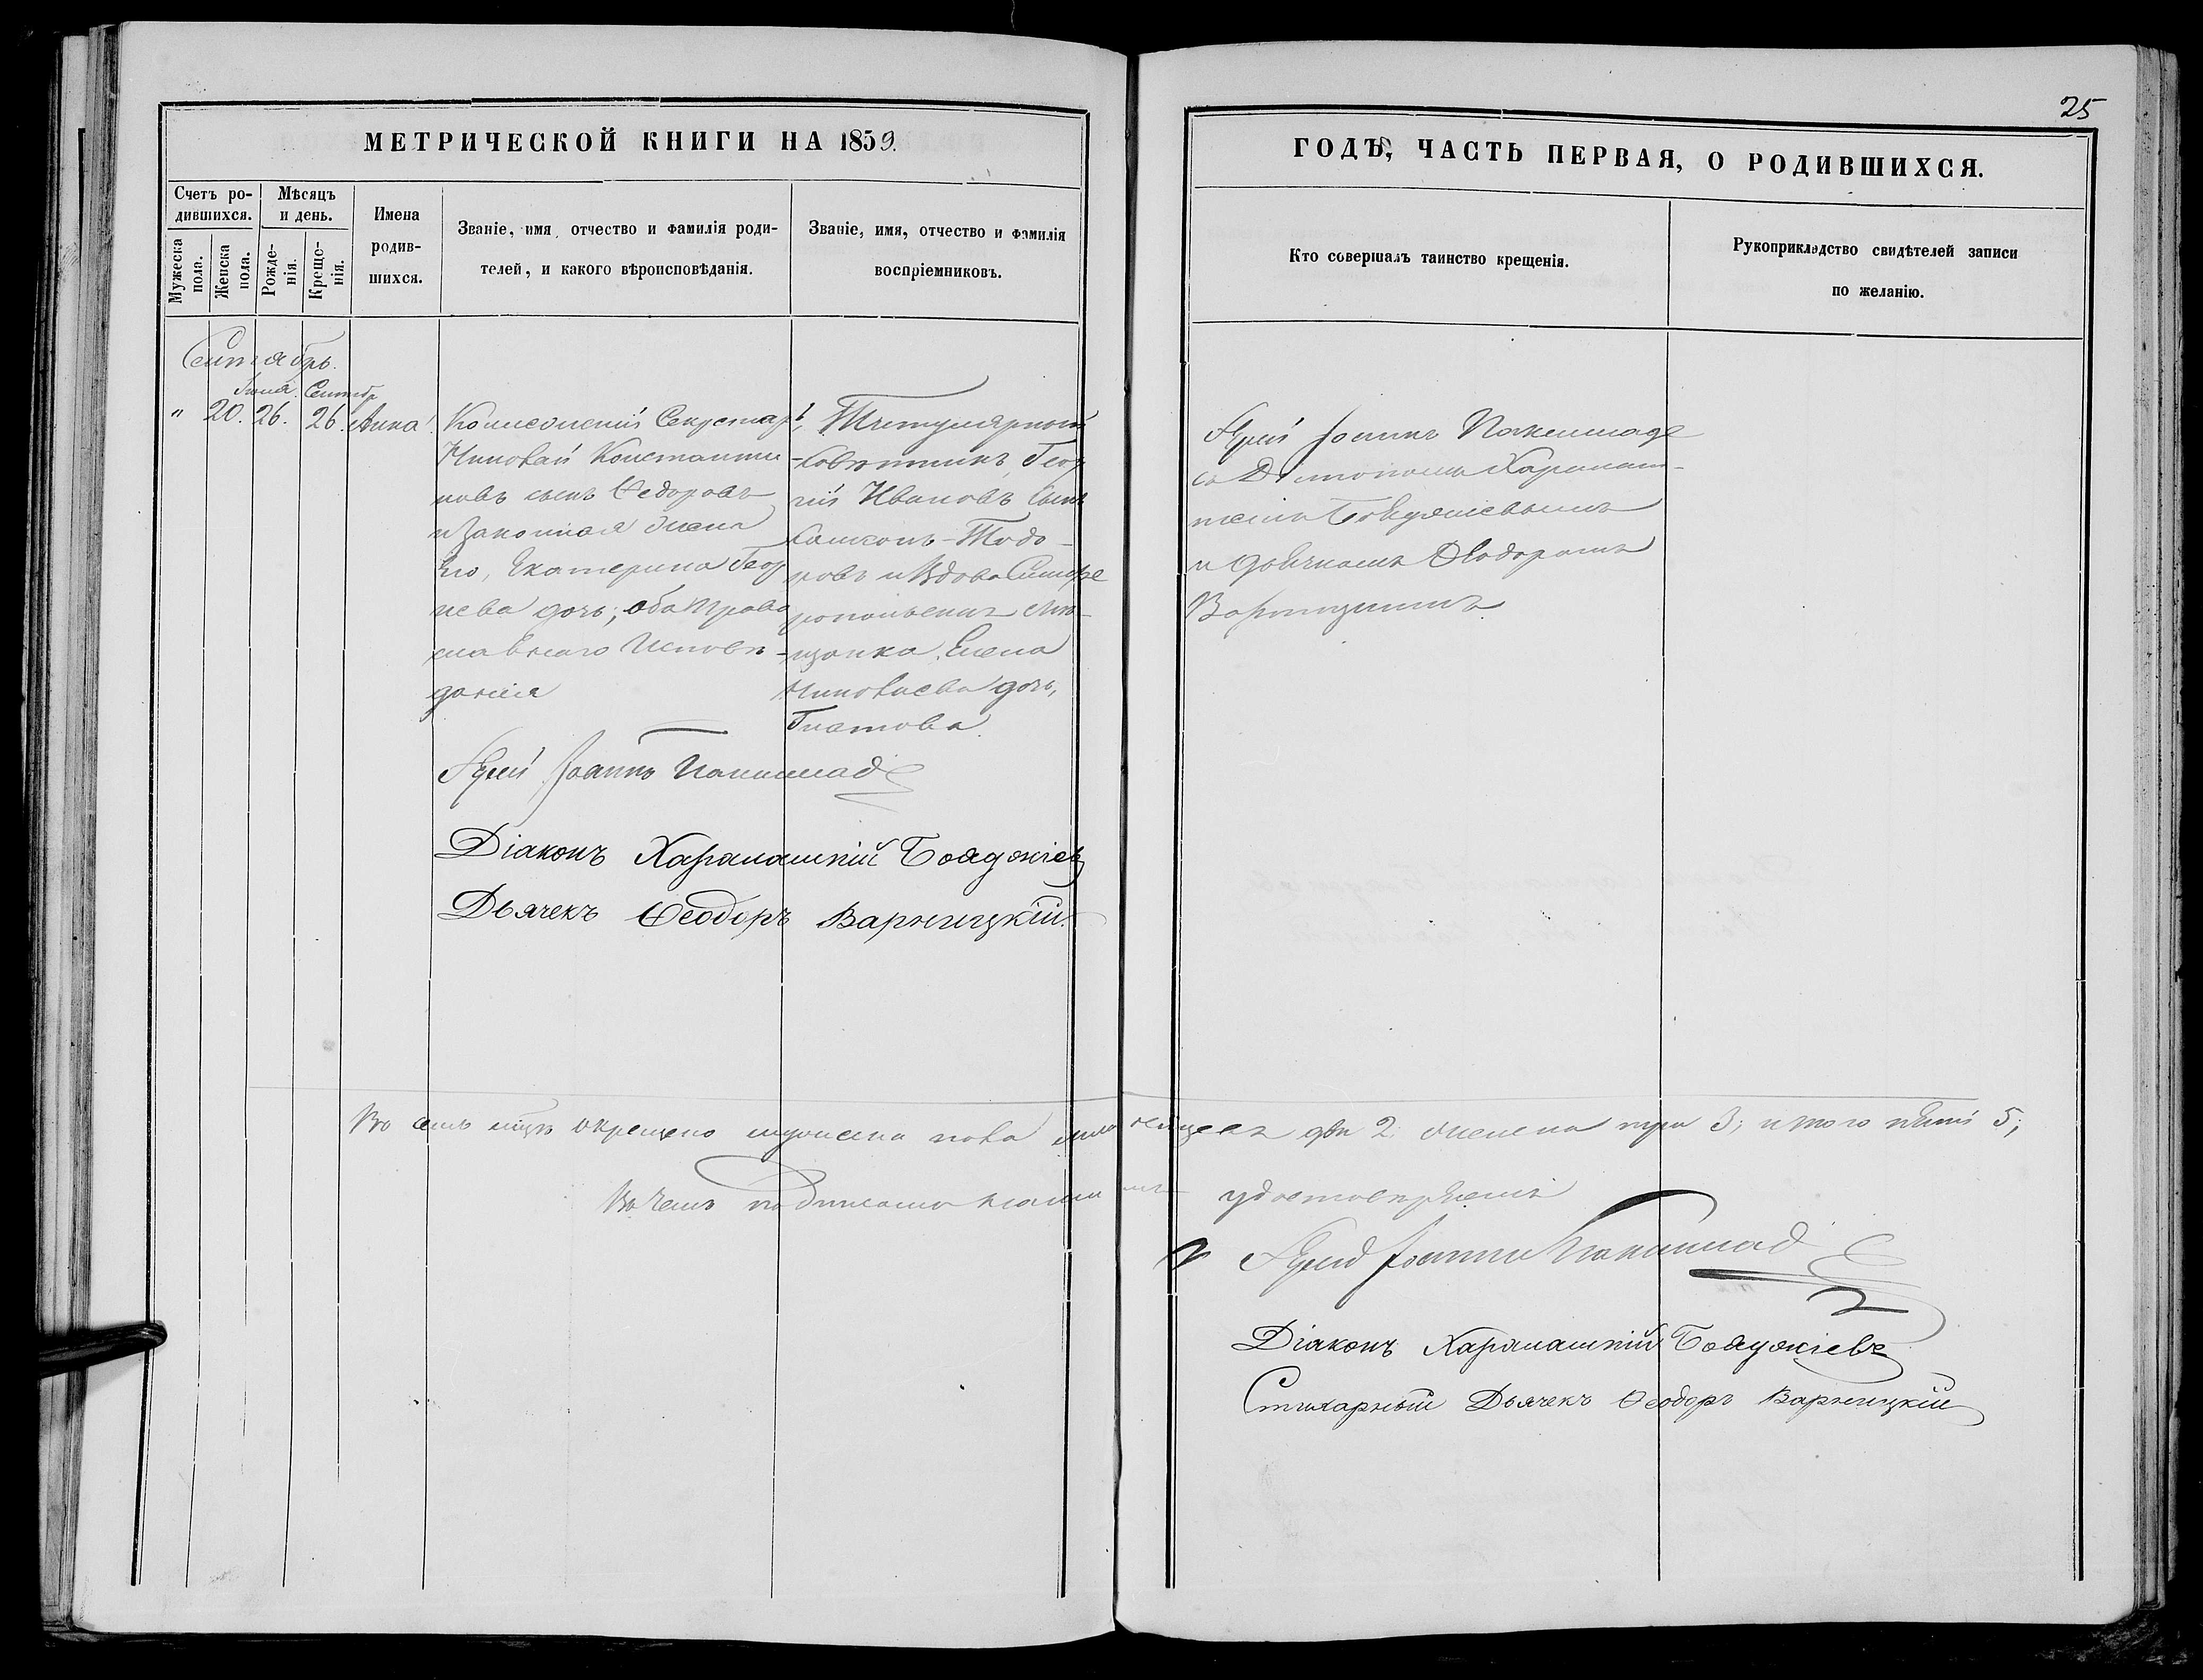 25
МЕТРИЧЕСКОЙ КНИГИ НА 1859.
ГОДЪ, ЧАСТЬ ПЕРВАЯ, О РОДИВШИХСЯ.
Счетъ ро-
дившихся.
Мужеска
пола.
Женска
пола.
Мѣсяцъ
и день.
Рожде-
нія.
Креще-
нія.
Имена
родив-
шихся.
Званіе, имя, отчество и фамилія роди-
телей, и какого вѣроисповѣданія.
Званіе, имя, отчество и фамилія
воспріемниковъ.
Кто совершалъ таинство крещенія.
Рукоприкладство свидѣтелей записи
по желанію.
Сентябрь.
Сентяб
" 20. 26. 26. Анна
Коллежскій Секретарь,
Николай Константи
новъ сынъ Ѳедоровъ
и Законная жена
Его, Екатерина Геор
гіева дочь; оба Право
славнаго Исповѣ-
данія
Титулярный
Совѣтникъ, Геор
гій Ивановъ Сынъ
Тодо-
ровъ и Вдова Симфе
ропольская Мѣ-
щанка, Елена
Николаева дочь,
Іерей Іоаннъ
съ Діакономъ Харалам-
піемъ Бояджіевымъ
и дьячкомъ Ѳеодоромъ
Варницкимъ.
Іерей Іоаннъ
Діаконъ Харалампій Бояджіевъ
Дьячекъ Ѳеодоръ Варницкій.
Во семъ мцѣ окрещено мужеска пола младенцевъ два 2; женска три 3; итого пять 5;
Въ чемъ подписомъ нашимъ удостовѣряемъ
Іерей Іоаннъ
Діаконъ Харалампій Бояджіевъ
Стихарный Дьячекъ Ѳеодоръ Варницкій